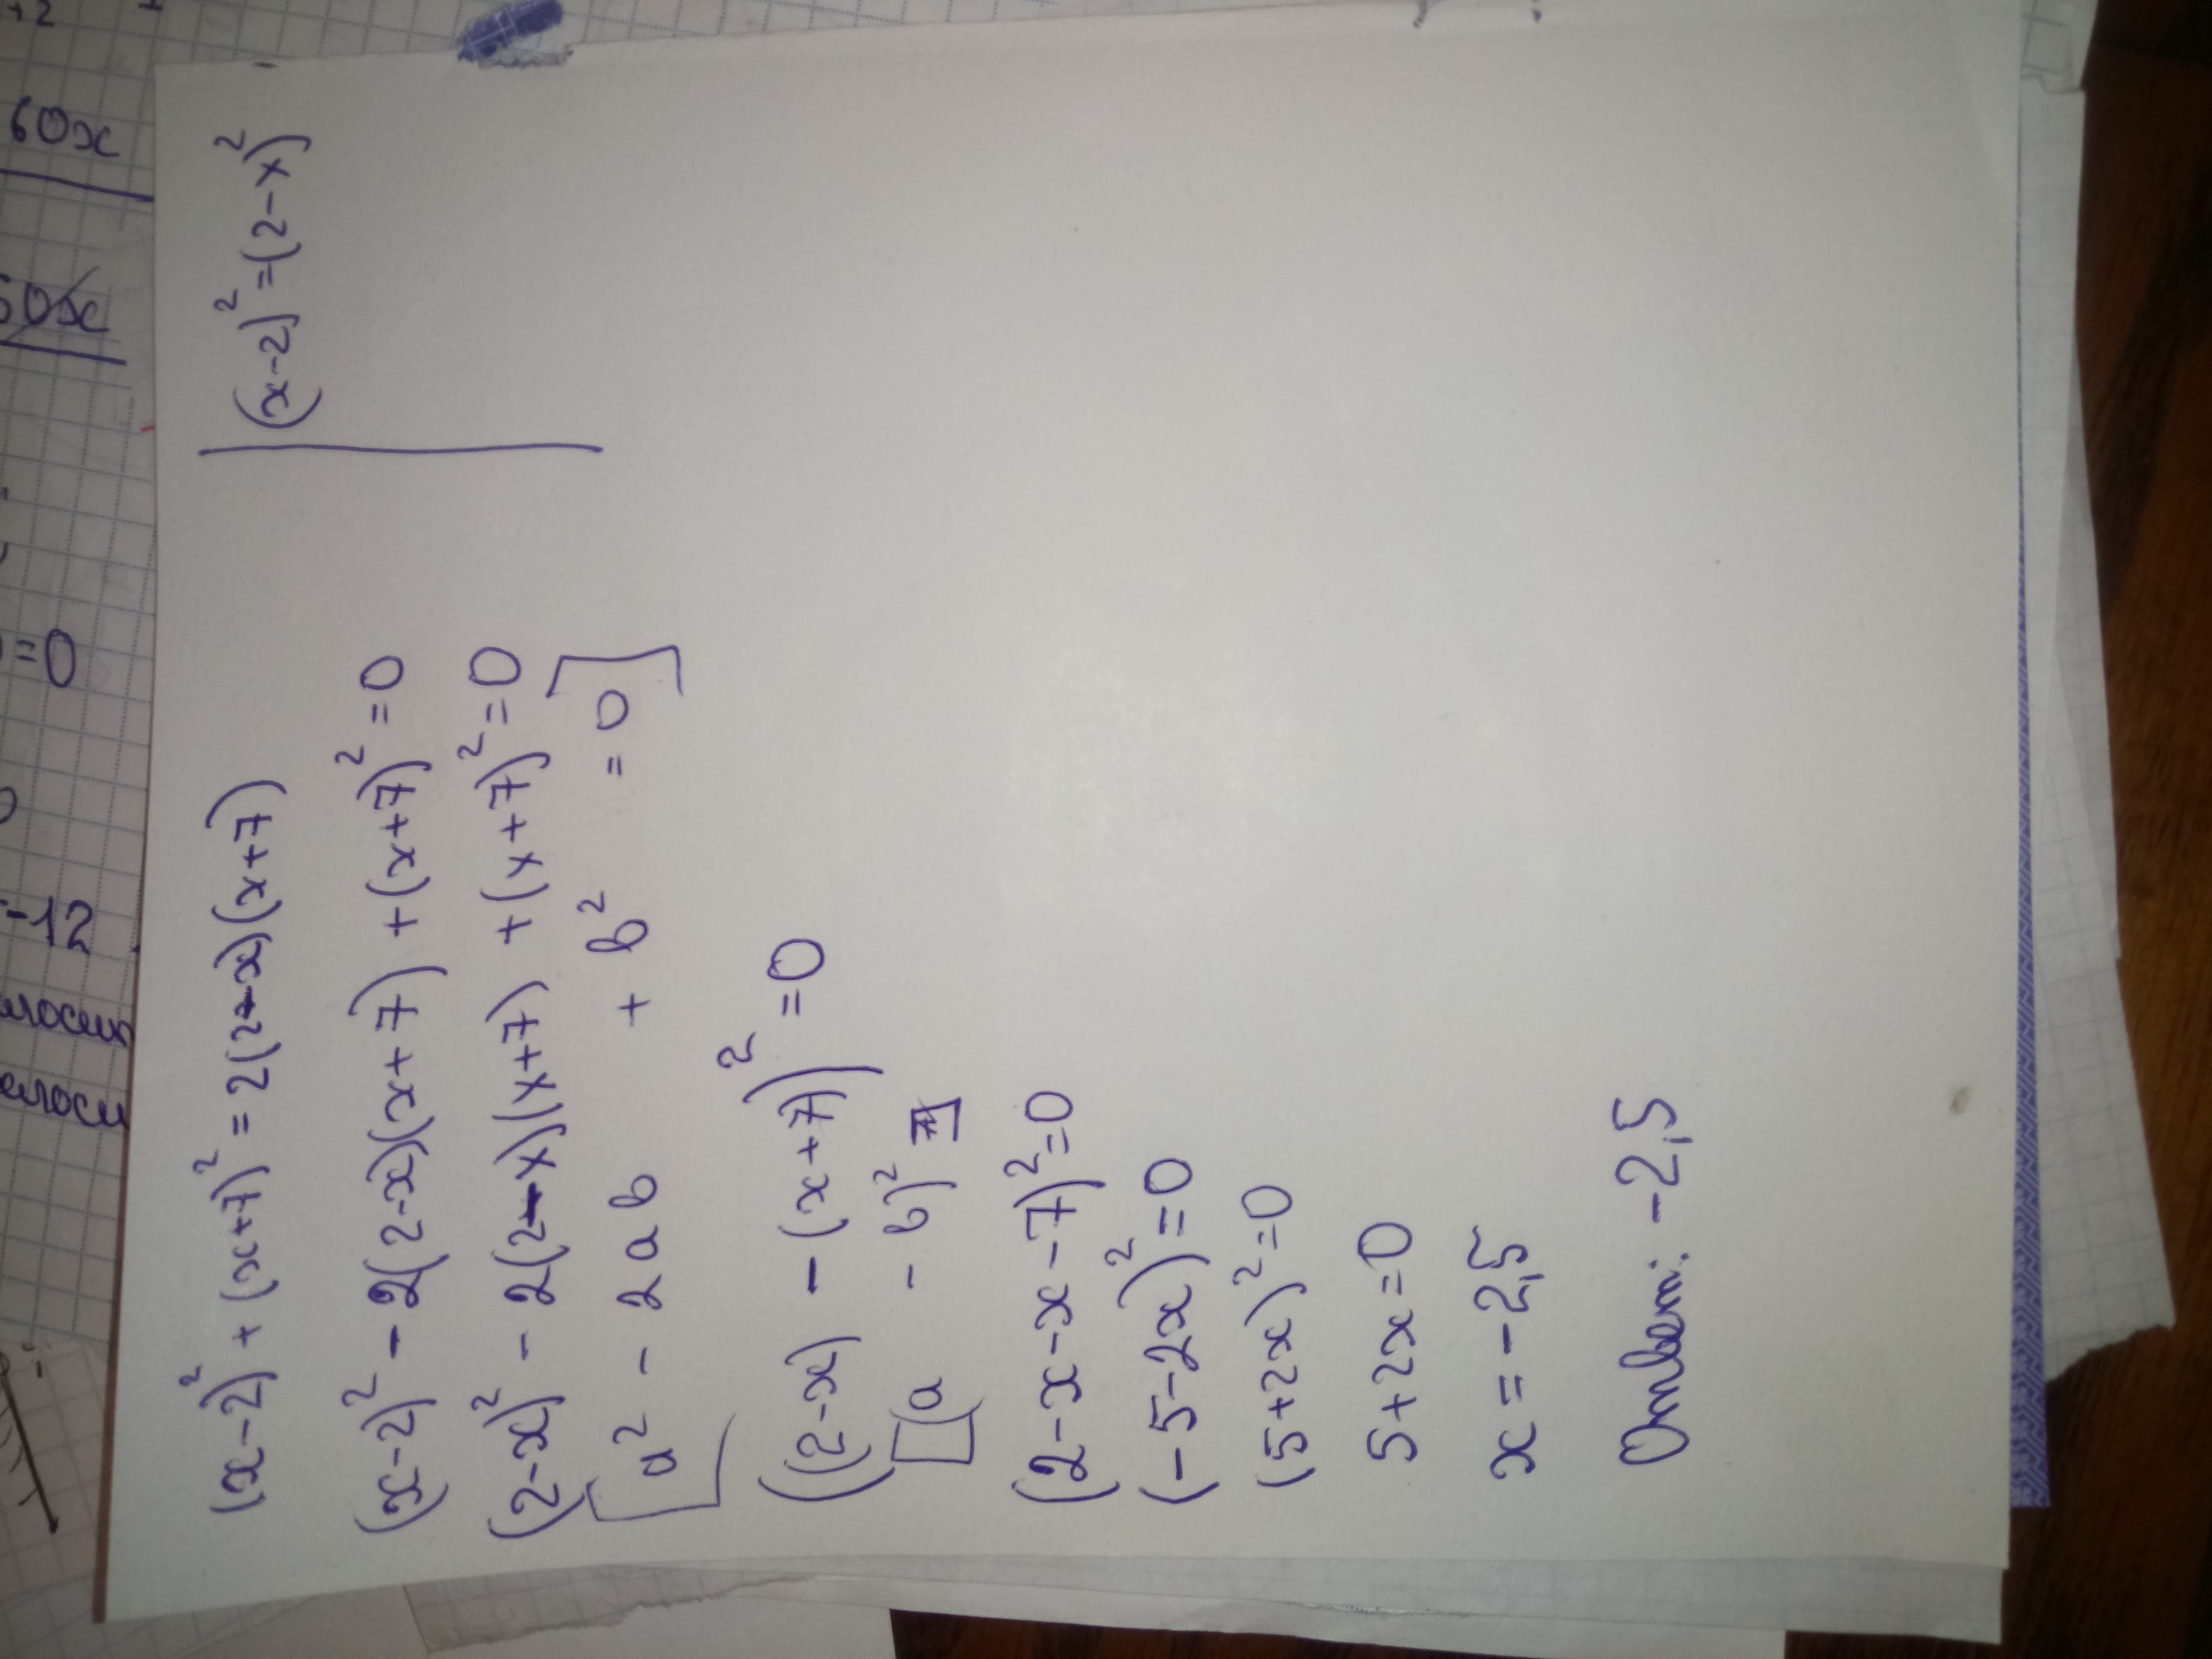 (x-2)² + (x+7)² = 2(2-x)(x+7)
(x-2)² = (2-x)²
(x-2)² - 2(2-x)(x+7) + (x+7)² = 0
(2-x)² - 2(2-x)(x+7) + (x+7)² = 0
[a² - 2ab + b² = 0]
((2-x) - (x+7))² = 0
(a - b)²
(2-x-x-7)² = 0
(-5-2x)² = 0
(5+2x)² = 0
5+2x=0
x = -2,5
Ответ: -2,5
+2
60x
60x
=0
-12